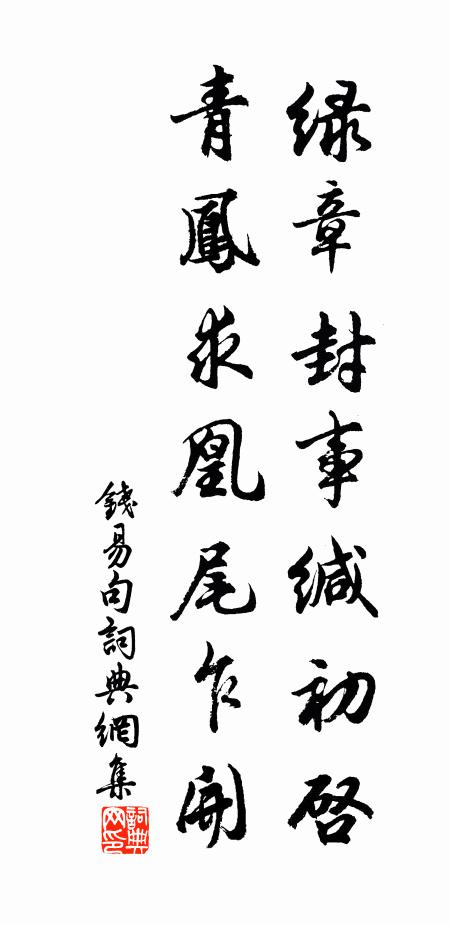 绿章封事缄初启
青鳳求凰尾乍開
錢易句詞典網集
詞典网印